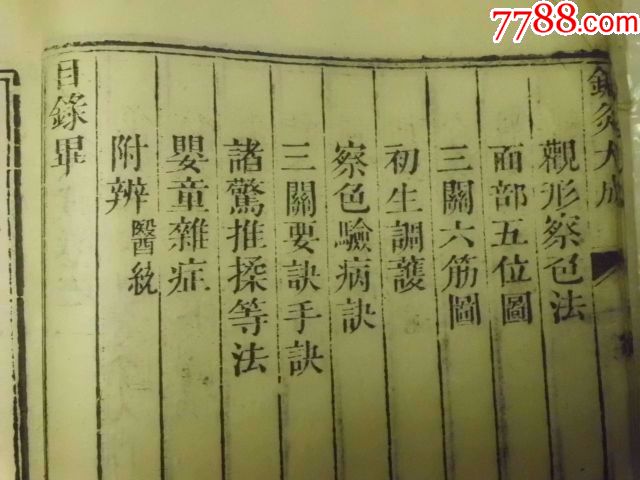 7788.com
鍼灸大成
觀形察色法
面部五位圖
三關六筋圖
初生調護
察色驗病訣
三關要訣手訣
諸驚推揉等法
嬰童雜症
附辨醫統
目錄畢